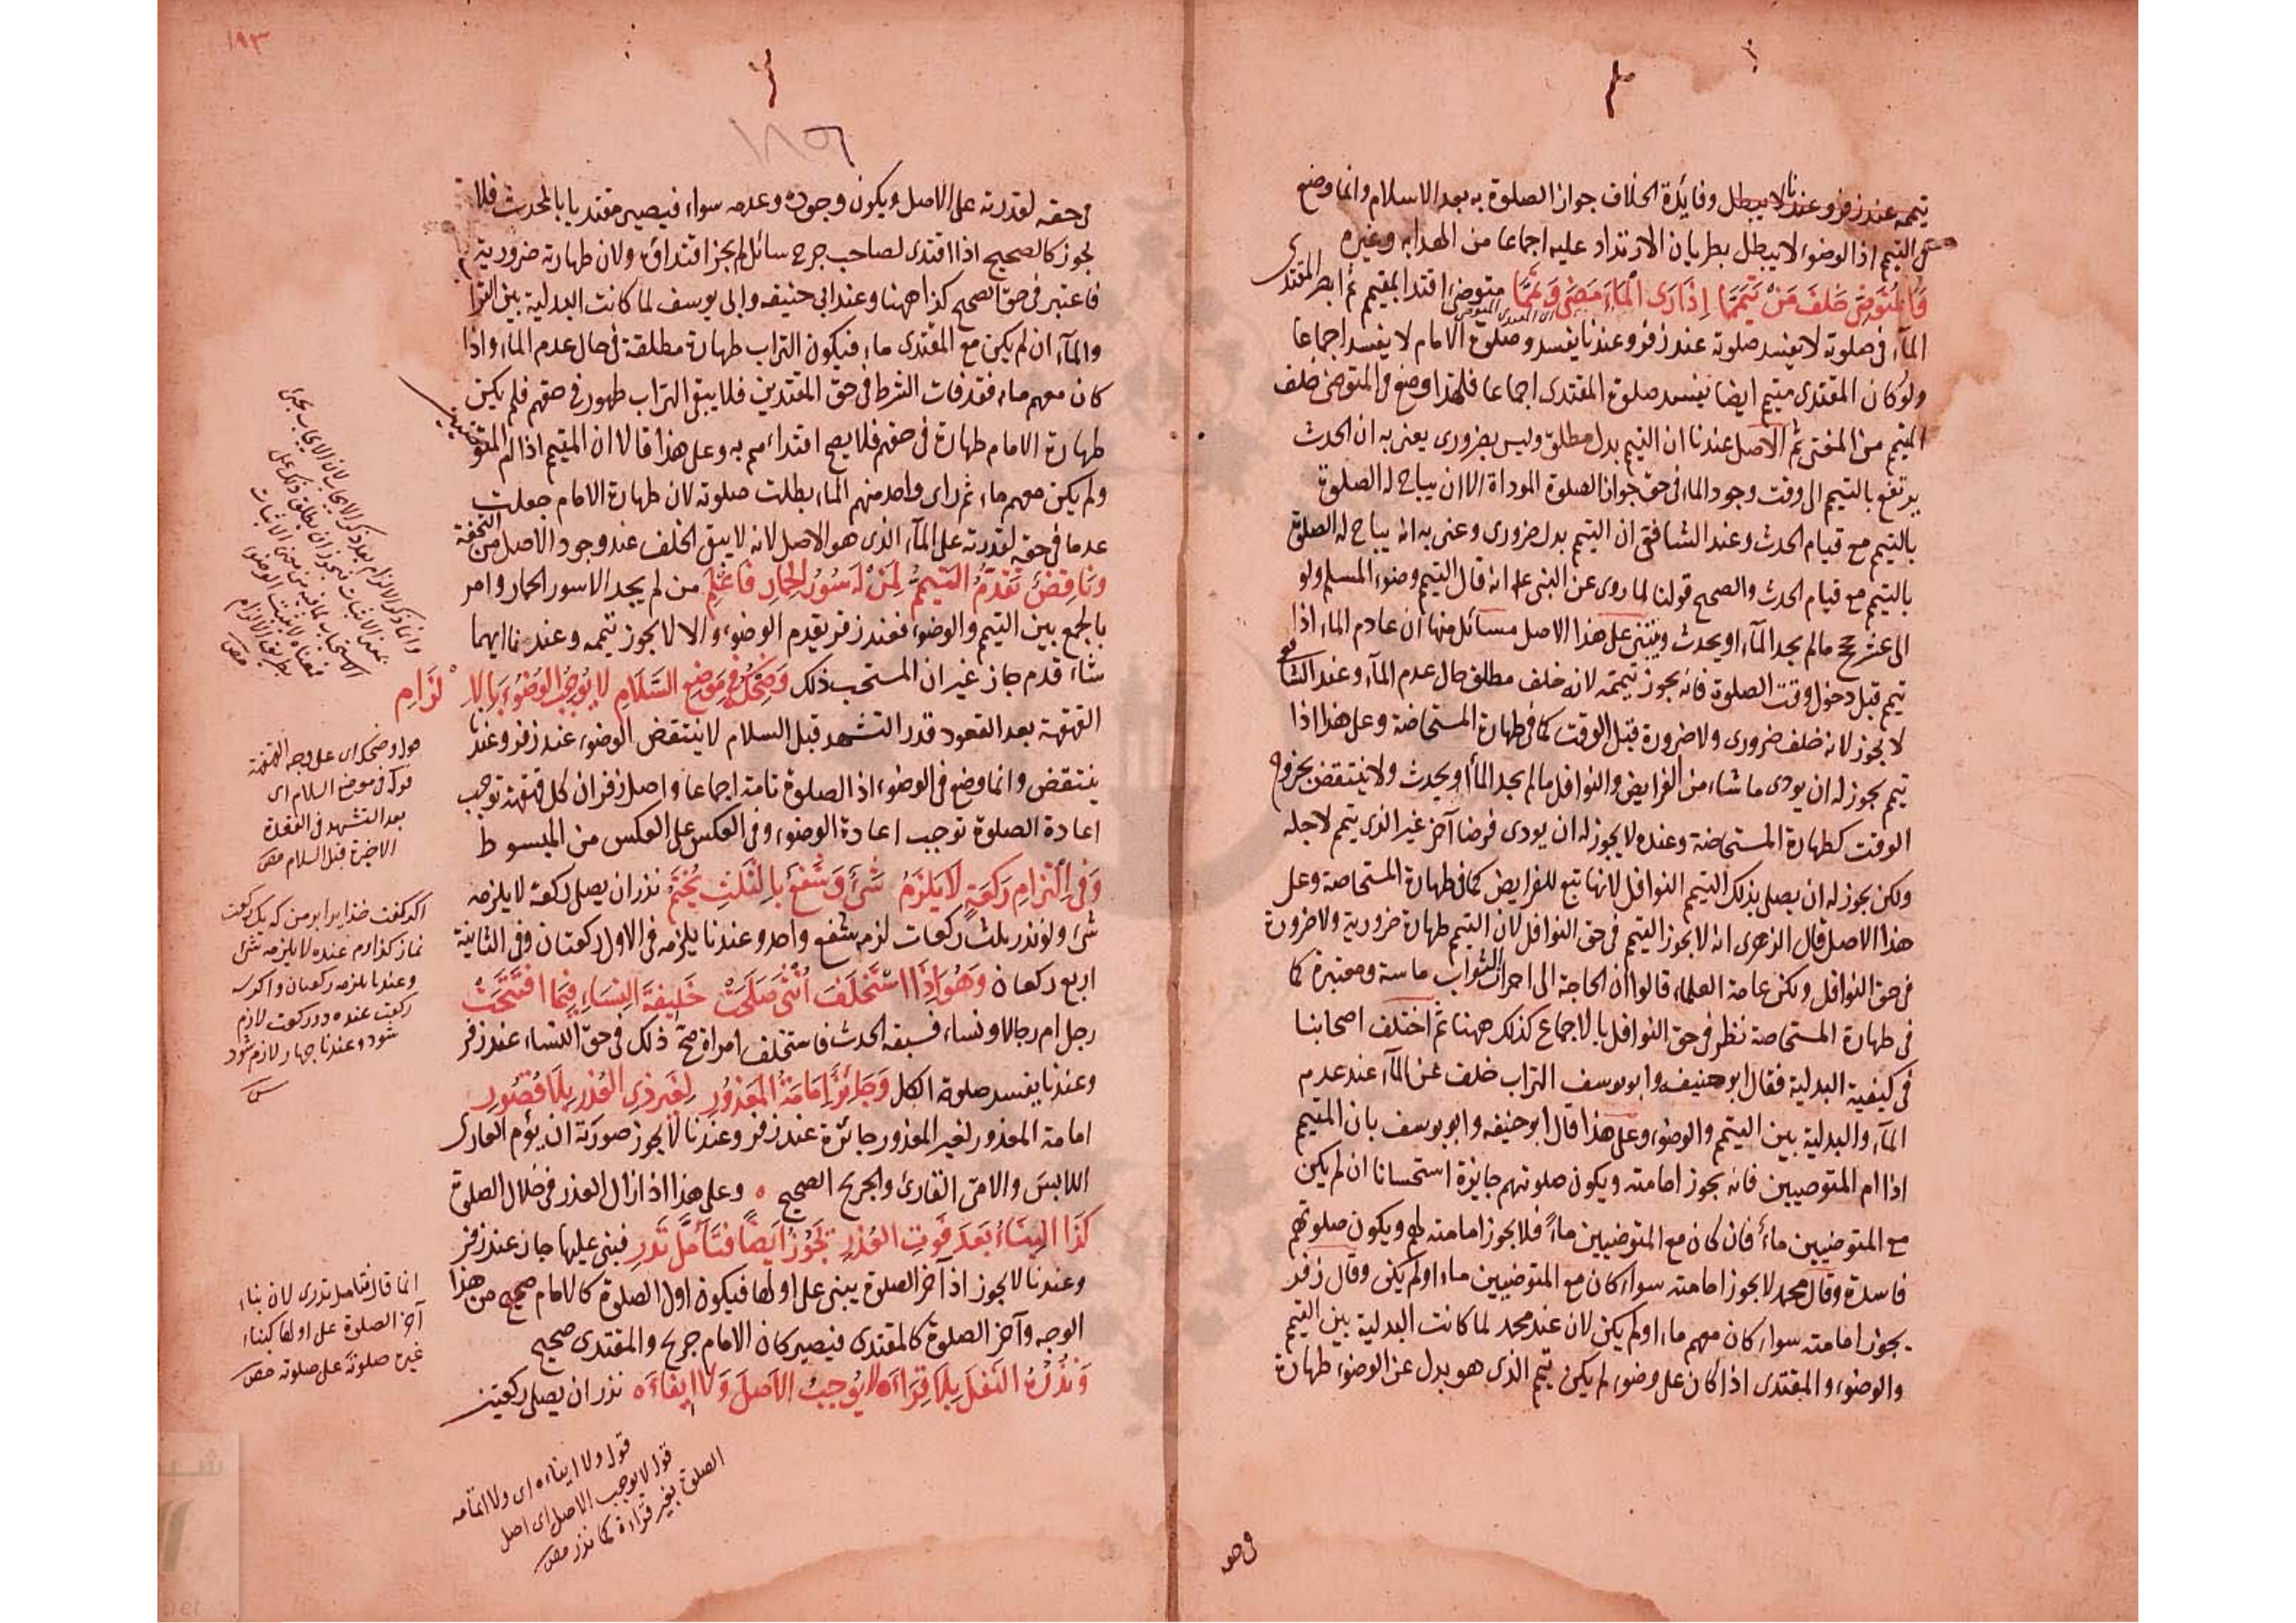 تيممه عند زفر وعندنا لا يبطل وفايدة الخلاف جواز الصلوة به بعد الاسلام وانما وضع
في التيمم اذ الوضوء لا يبطل بطريان الارتداد عليه اجماعا من الهدايه وغيره
وَالمُتَوضِّئ خَلفَ مَنْ تَيَمَّمَا اِذَا رَأى المَاءَ مَضَى وَتَمَّمَا متوضئ اقتدا بمقيم ثم ابصر المقتدى
الماء في صلوته لا يفسد صلوته عند زفر وعندنا يفسد وصلوة الامام لا يفسد اجماعا
ولو كان المقتدى متيمم ايضا يفسد صلوة المقتدى اجماعا فلهذا وضع في المتوضئ خلف
المتيمم من المفتى ثم الاصل عندنا ان التيمم بدل مطلق وليس بضرورى يعنى به ان الحدث
يرتفع بالتيمم الى وقت وجود الماء في حق جواز الصلوة المودّاة الا ان يباح له الصلوة
بالتيمم مع قيام الحدث وعند الشافعي ان التيمم بدل ضرورى وعنى به انه يباح له الصلوة
بالتيمم مع قيام الحدث والصحيح قولنا لما روى عن النبى عليه انه قال التيمم وضوء المسلم ولو
الى عشر حجج مالم يجد الماء او يحدث ويبتنى على هذا الاصل مسائل منها ان عادم الماء اذا
تيمم قبل دخول وقت الصلوة فانه يجوز تيممه لانه خلف مطلق حال عدم الماء وعند الشافعي
لا يجوز لانه خلف ضرورى ولا ضرورة قبل الوقت كما في طهارة المستحاضة وعلى هذا اذا
تيمم يجوز له ان يودى ما شاء من الفرايض والنوافل مالم يجد الماء او يحدث ولا ينتقض بخروج
الوقت كطهارة المستحاضة وعنده لا يجوز له ان يودى فرضا آخر غير الذى تيمم لاجله
ولكن يجوز له ان يصلى بذلك التيمم النوافل لانها تبع للفرايض كما في طهارة المستحاضة وعلى
هذا الاصل قال الزهرى انه لا يجوز التيمم في حق النوافل لان التيمم طهارة ضرورية ولا ضرورة
في حق النوافل ولكن عامة العلماء قالوا ان الحاجة الى احراز الثواب ماسة ومعتبرة كما
في طهارة المستحاضة نظر في حق النوافل بالاجماع كذلك ههنا ثم اختلف اصحابنا
في كيفية البدلية فقال ابو حنيفه وابو يوسف التراب خلف عن الماء عند عدم
الماء والبدلية بين التيمم والوضوء وعلى هذا قال ابو حنيفه وابو يوسف بان المتيمم
اذا ام المتوضيين فانه يجوز امامته ويكون صلوتهم جايزة استحسانا ان لم يكن
مع المتوضيين ماء فان كان مع المتوضيين ماءً فلا يجوز امامته لهم ويكون صلوتهم
فاسدة وقال محمد لا يجوز امامته سواء كان مع المتوضيين ماء او لم يكن وقال زفر
يجوز امامته سواء كان معهم ماء او لم يكن لان عند محمد لما كانت البدلية بين التيمم
والوضوء والمقتدى اذا كان على وضوء لم يكن تيمم الذى هو بدل عن الوضوء طهارة
في حقه
١٩٣
في حقه لقدرته على الاصل ويكون وجوده وعدمه سواء فيصير مقتديا بالمحدث فلا
يجوز كالصحيح اذا اقتدى لصاحب جرح سائل لم يجز اقتداؤه ولان طهارته ضرورية
فاعتبر في حق الصحيح كذا ههنا وعند ابى حنيفه وابى يوسف لما كانت البدلية بين التراب
والماء ان لم يكن مع المقتدى ماء فيكون التراب طهارة مطلقة في حال عدم الماء واذا
كان معهم ماء فقد فات الشرط في حق المقتدين فلا يبقى التراب طهور في حقهم فلم يكن
طهارة الامام طهارة في حقهم فلا يصح اقتداءهم به وعلى هذا قالا ان المتيمم اذا ام المتوضيين
ولم يكن معهم ماء ثم راى واحد منهم الماء بطلت صلوته لان طهارة الامام جعلت
عدما في حقه لقدرته على الماء الذى هو الاصل لانه لا يبقى الخلف عند وجود الاصل من التحفة
وَنَاقِضٌ تَقَدُّمُ التَيَمُّمِ لِمَنْ لَهُ سُوْرُ الحِمَارِ فَاعْلَمِ من لم يجد الا سور الحمار وامر
بالجمع بين التيمم والوضوء فعند زفر يقدم الوضوء والا لا يجوز تيممه وعندنا ايهما
شاء قدم جاز غير ان المستحب ذلك وَضِحْكٌ فِي مَوْضِعِ السَّلَامِ لا يُوْجِبُ الوُضُوْءَ بِالالْزَامِ
القهقهة بعد القعود قدر التشهد قبل السلام لا ينتقض الوضوء عند زفر وعندنا
ينتقض وانما وضع في الوضوء اذ الصلوة تامة اجماعا واصل زفر ان كل قهقهة توجب
اعادة الصلوة توجب اعادة الوضوء وفي العكس على العكس من المبسوط
وَفي اِلْتِزَامِ رَكعَةٍ لَا يَلْزَمُ شَيْءٌ وَشَفْعٌ بِالثَّلثِ يُخْتَمُ نذر ان يصلى ركعة لا يلزمه
شئ ولو نذر بثلث ركعات لزمه شفع واحد وعندنا يلزمه في الاول ركعتان وفي الثانية
اربع ركعات وَهُوَ اِذَا اسْتَخْلَفَ اُنْثَى صَلَحَتْ خَلِيفَةَ النِسَاءِ فِيمَا افْتَتَحَتْ
رجل ام رجالا ونساء فسبقه الحدث فاستخلف امراة صح ذلك في حق النساء عند زفر
وعندنا يفسد صلوة الكل وَجَائِزٌ اِمَامَةُ المَعْذُوْرِ لِغَيرِ ذِي العُذْرِ بِلَا قُصُورِ
امامة المعذور لغير المعذور جائزة عند زفر وعندنا لا يجوز صورته ان يؤم العارى
اللابس والامى القارئ والجريح الصحيح ٥ وعلى هذا اذا زال العذر في خلال الصلوة
كَذَا البِنَاءُ بَعدَ فَوتِ العُذْرِ يَجُوْزُ اَيضًا فَتَأَمَّلْ تَدْرِ فبنى عليها جاز عند زفر
وعندنا لا يجوز اذ آخر الصلوة يبنى على اولها فيكون اول الصلوة كالامام صحيح من هذا
الوجه وآخر الصلوة كالمقتدى فيصير كان الامام جريح والمقتدى صحيح
وَنَذْرُهُ النَّفْلَ بِلَا قِرَاءَه لا يُوْجِبُ الاَصلَ وَلا اِيفَاءَه نذر ان يصلى ركعتين
قوله وضحك اى على وجه القهقهة
قوله في موضع السلام اى
بعد التشهد في القعدة
الاخيرة قبل السلام
نماز كذارم عنده لا يلزمه شئ
وعندنا يلزمه ركعتان و اكر سه
ركعت عنده دو ركعت لازم
شود وعندنا جهار لازم شود
انما قال فتامل تدرى لان بناء
آخر الصلوة على اولها كبناء
غيره صلوته على صلوته
قوله ولا ايفاءه اى ولا اتمامه
قوله لا يوجب الاصل اى اصل
الصلوة بغير قراءة كما نذر